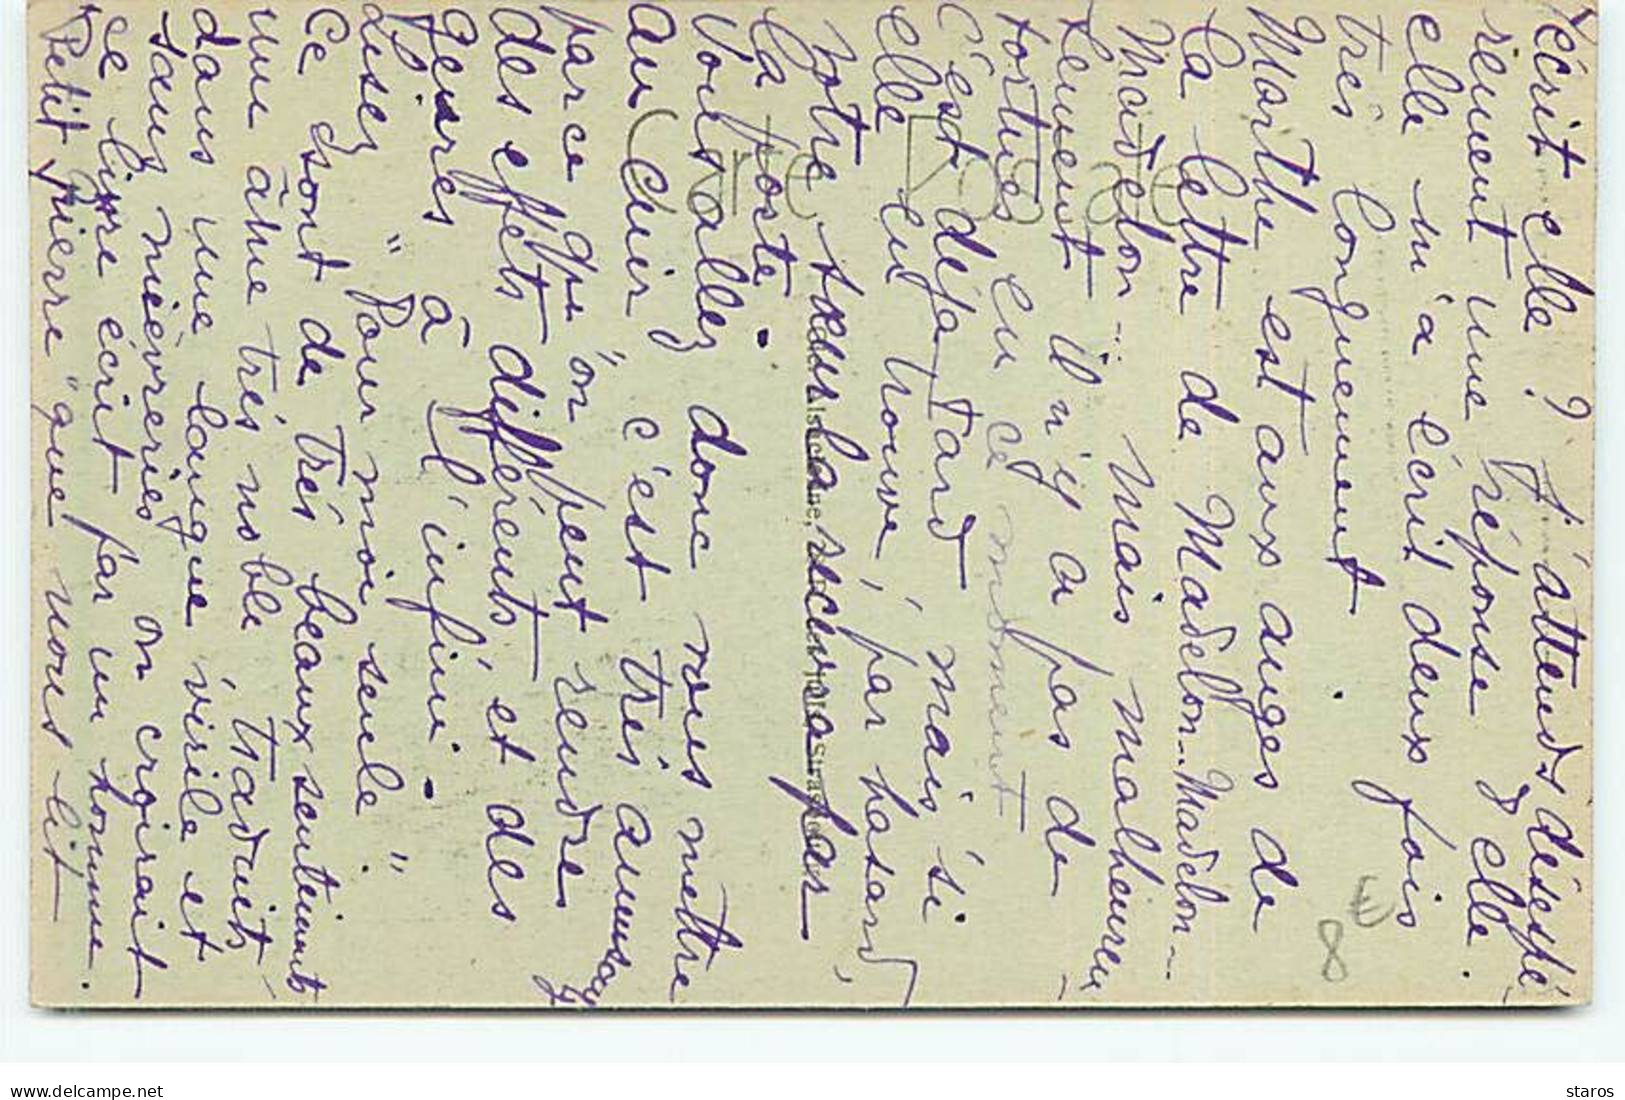 écrit elle ? J'attends désespé-
rément une réponse d'elle.
elle m'a écrit deux fois
très longuement.
Marthe est aux anges de
la lettre de Madelon... Madelon...
Madelon... mais malheureu-
sement il n'y a pas de
tortues en ce moment
C'est déjà tard mais si
elle en trouve, par hasard,
votre sœur la recevra par
la poste.
Vous allez donc vous mettre
au cuir, c'est très amusant
parce qu'on peut rendre
des effets différents, et des
genres à l'infini.
Lisez "Pour moi seule"
Ce sont de très beaux sentiments
une âme très noble traduits
dans une langue virile et
sans mièvreries on croirait
ce livre écrit par un homme.
"Petit Pierre" que nous lit
8 €
staros